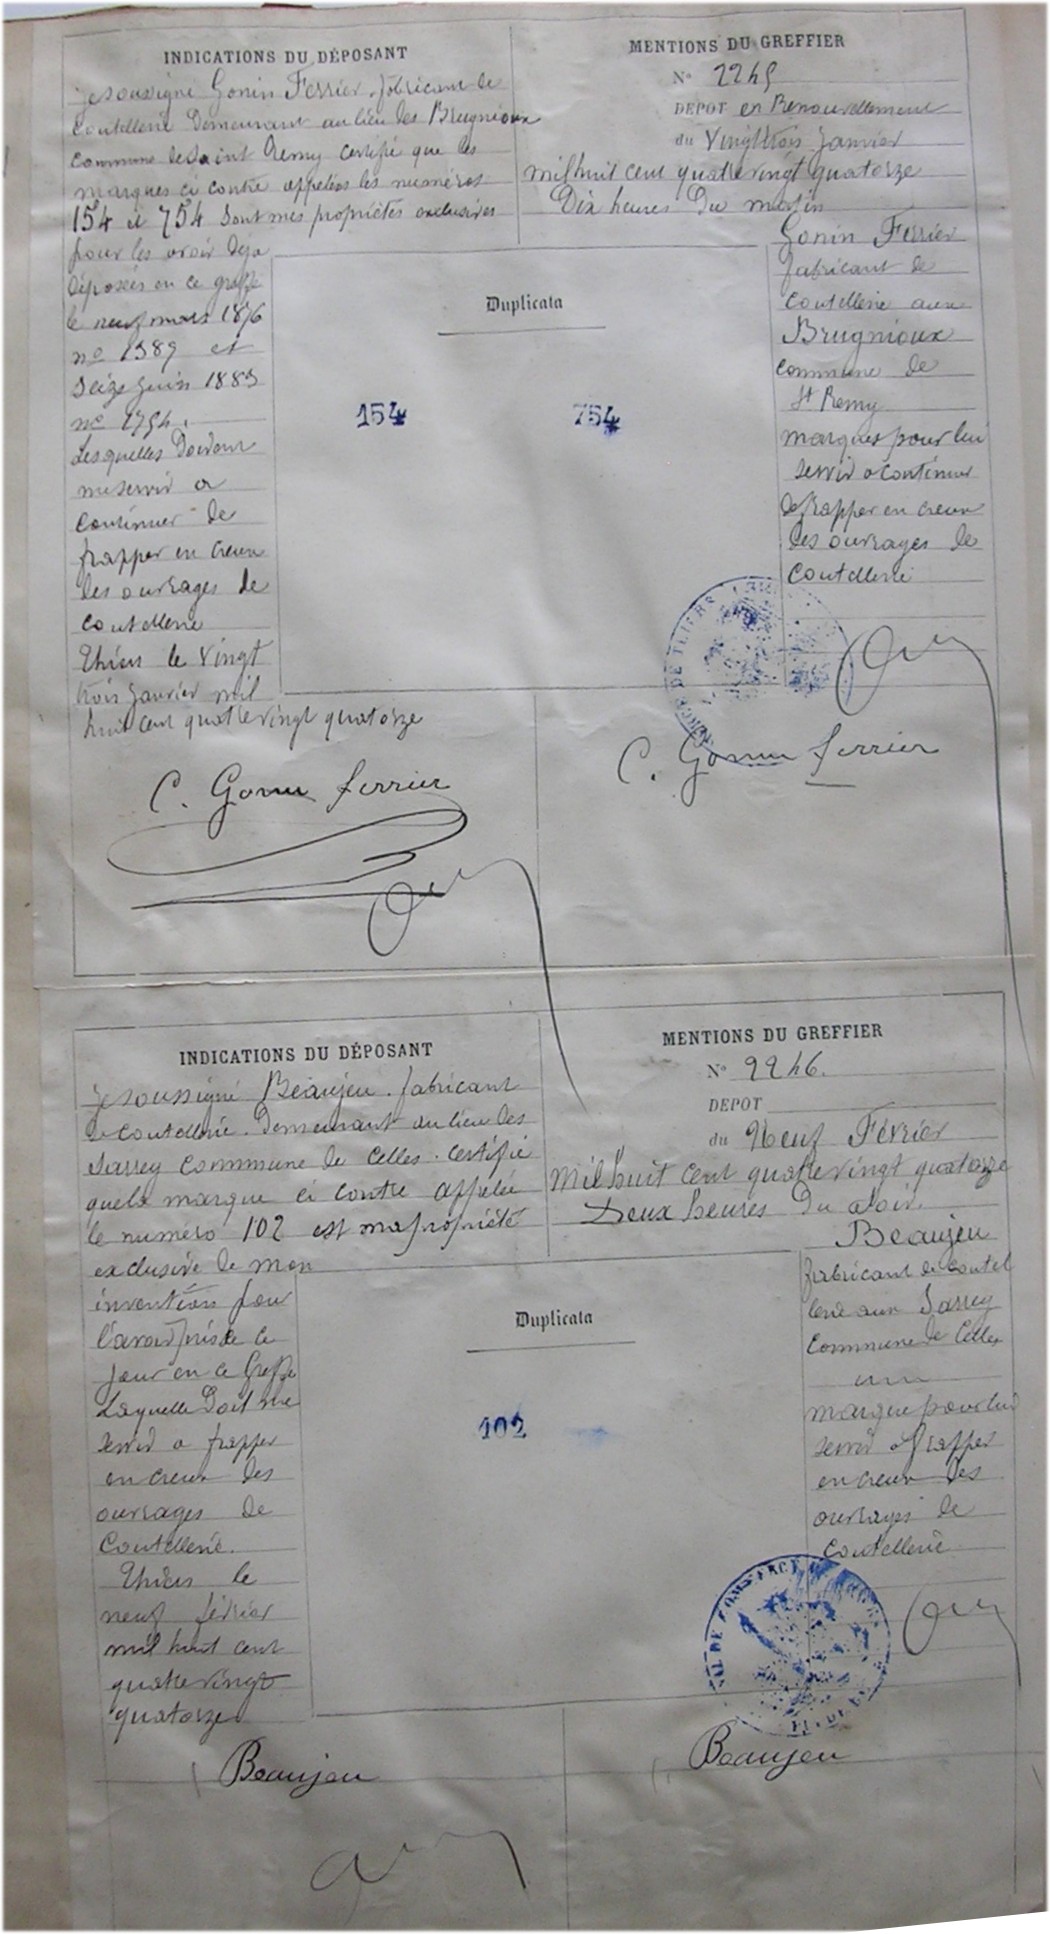 INDICATIONS DU DÉPOSANT
Je soussigné Gonin Ferrier. fabricant de
Coutellerie Demeurant au lieu des Brugnioux
Commune de Saint Remy certifie que les
marques ci contre appelées les numéros
154 et 754 sont mes propriétés exclusives
pour les avoir déja
déposées en ce greffe
le neuf mars 1876
no 1389 et
seize juin 1883
no
Lesquelles Doivent
me servir a
Continuer de
frapper en creux
des ouvrages de
coutellerie
Thiers le Vingt
trois Janvier mil
huit cent quatre vingt quatorze
C. Gonin ferrier
MENTIONS DU GREFFIER
No 2245
DEPOT en Renouvellement
du Vingt trois Janvier
mil huit cent quatre vingt quatorze
Dix heures Du matin
Gonin Ferrier
fabricant de
Coutellerie aux
Brugnioux
Commune de
St Remy
marques pour lui
servir a continuer
de frapper en creux
des ouvrages de
Coutellerie
C. Gonin ferrier
Duplicata
154 754
INDICATIONS DU DÉPOSANT
Je soussigné Beaujeu. fabricant
de Coutellerie. Demeurant au lieu des
Sarrey Commune de Celles. Certifie
que la marque ci contre appelée
le numéro 102 est ma propriété
exclusive de mon
invention pour
l'avoir prise ce
jour en ce Greffe
Laquelle Doit me
servir a frapper
en creux des
ouvrages de
Coutellerie.
Thiers le
neuf février
mil huit cent
quatre vingt
quatorze
Beaujeu
MENTIONS DU GREFFIER
No 2246.
DEPOT
du Neuf Février
Mil huit cent quatre vingt quatorze
Deux heures Du soir.
Beaujeu
fabricant de coutel
lerie aux Sarrey
Commune de Celles
une
marque pour lui
servir a frapper
en creux des
ouvrages de
Coutellerie
Beaujeu
Duplicata
102